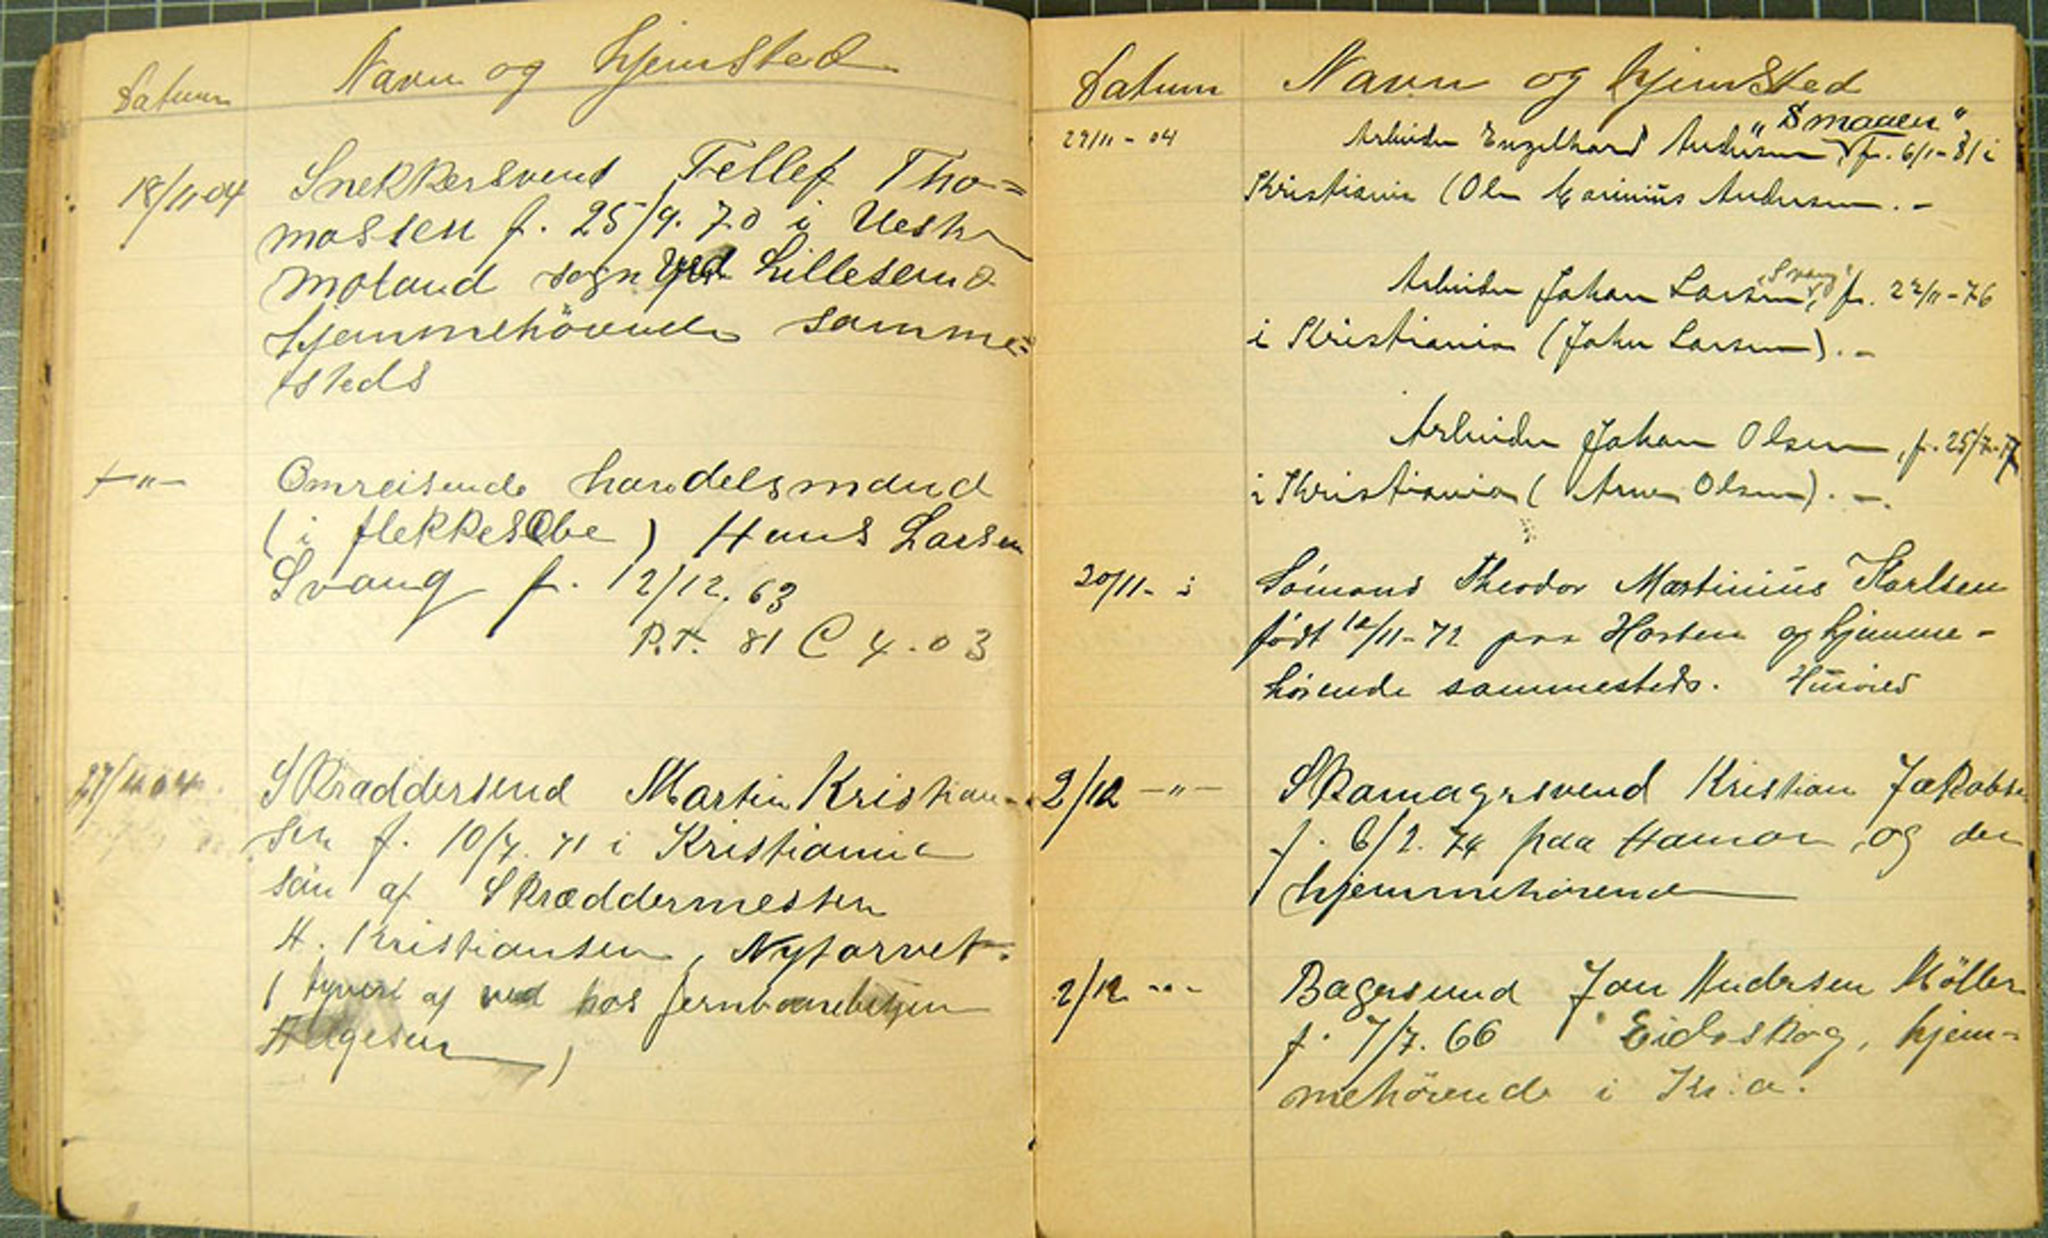 Datum Navn og hjemsted
18/11 04 Snekkersvend Tellef Tho=
massen f. 25/9. 70 i Vestre
Moland sogn ved Lillesand
hjemmehörende samme=
steds
—"— Omreisende handelsmand
( i flekkesæbe ) Hans Larsen
Svang f. 12/12. 63
P.T. 81 C 4. 03
27/11 04 Skraddersvend Martin Kristian-
sen f. 10/7. 71 i Kristiania
sön af Skræddermester
H. Kristiansen, Nytorvet.
( tyveri af ved hos jernbanebetjen
Helgesen )
Datum Navn og hjemsted
29/11 - 04 Arbeider Engelhard Andersen "Smaaen", f. 6/1-81 i
Kristiania (Ole Marinius Andersen. -
Arbeider Johan Larsen, "Svang" f. 22/11-76
i Kristiania (John Larsen). -
Arbeider Johan Olsen, f. 25/7-77
i Kristiania ( Arne Olsen). -.
30/11- " Sömand Theodor Martinius Karlsen
født 12/11-72 paa Horten og hjemme-
hörende sammesteds.
2/12 —"— Skomagersvend Kristian Jakobsen
f. 6/2. 74 paa Hamar og der
hjemmehörende
2/12 -"- Bagersvend Jan Andersen Möller
f. 7/7. 66 Eidskog, hjem-
mehörende i Kr.a.